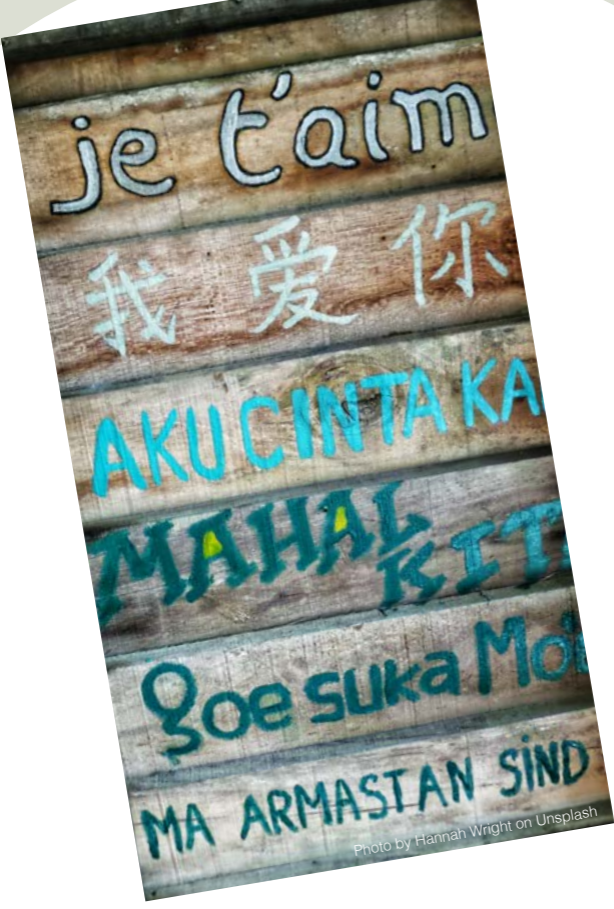 je t'aim
我 爱 你
AKU CINTA KA
MAHAL
KIT
goe suka Mo
MA ARMASTAN SIND
Photo by Hannah Wright on Unsplash